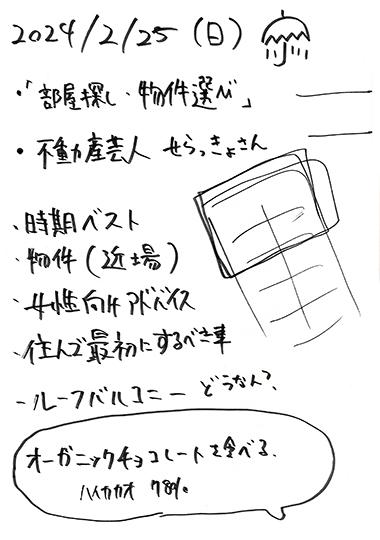 2024/2/25 (日)
・「部屋探し・物件選び」
・不動産芸人 せらっきょさん
・時期ベスト
・物件(近場)
・女性向けアドバイス
・住んで最初にするべき事
・ルーフバルコニー どうなん?
オーガニックチョコレートを食べる。
ハイカカオ 78%。